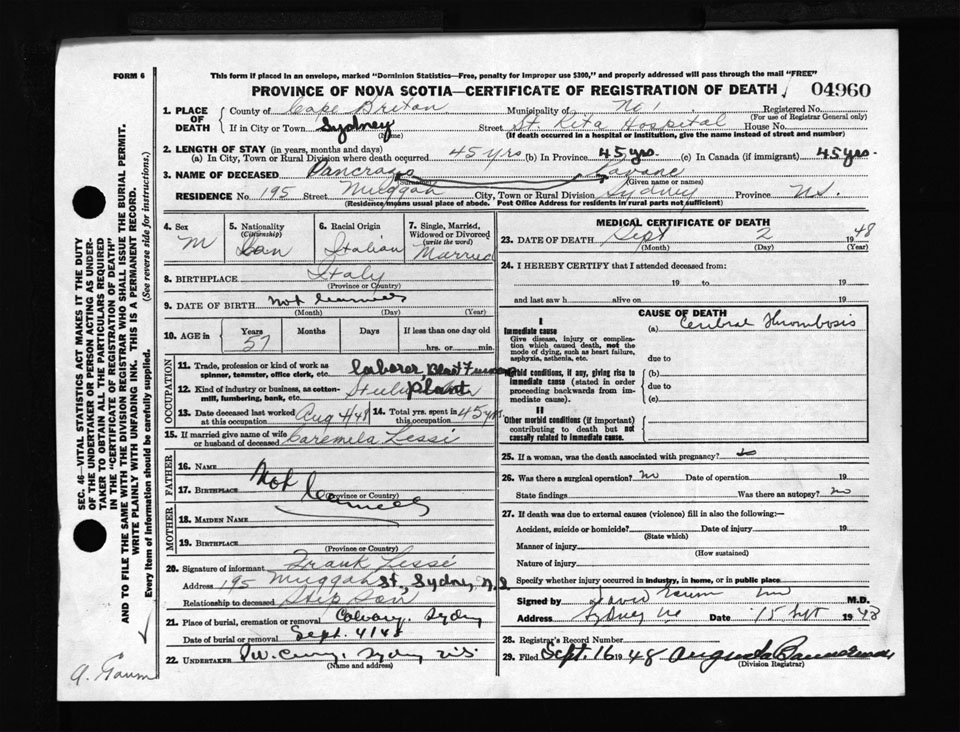 FORM 6
This form if placed in an envelope, marked "Dominion Statistics—Free, penalty for improper use $300," and properly addressed will pass through the mail "FREE"
PROVINCE OF NOVA SCOTIA—CERTIFICATE OF REGISTRATION OF DEATH 04960
1. PLACE OF DEATH County of Cape Breton Municipality of Registered No.
(For use of Registrar General only)
If in City or Town Sydney Street St. Rita Hospital House No.
(Name) (If death occurred in a hospital or institution, give its name instead of street and number)
2. LENGTH OF STAY (in years, months and days)
(a) In City, Town or Rural Division where death occurred 45 yrs (b) In Province 45 yrs. (c) In Canada (if immigrant) 45 yrs.
3. NAME OF DECEASED Pancrazo
(Surname) (Given name or names)
RESIDENCE No. 195 Street Muggah City, Town or Rural Division Sydney Province N.S.
(Residence means usual place of abode. Post Office Address for residents in rural parts not sufficient)
4. Sex M
5. Nationality (Citizenship) Can
6. Racial Origin Italian
7. Single, Married, Widowed or Divorced (write the word) Married
8. BIRTHPLACE Italy
(Province or Country)
9. DATE OF BIRTH not
(Month) (Day) (Year)
10. AGE in Years Months Days If less than one day old
57 hrs. or min.
OCCUPATION
11. Trade, profession or kind of work as spinner, teamster, office clerk, etc. laborer Blast Furnace
12. Kind of industry or business, as cotton-mill, lumbering, bank, etc. Steel Plant
13. Date deceased last worked at this occupation Aug 4/48 14. Total yrs. spent in this occupation 45 yrs.
15. If married give name of wife or husband of deceased Caremela Lessi
FATHER
16. NAME
17. BIRTHPLACE Not
(Province or Country)
MOTHER
18. MAIDEN NAME
19. BIRTHPLACE
(Province or Country)
20. Signature of informant Frank Lessi
Address 195 Muggah St, Sydney, N.S
Relationship to deceased Step Son
21. Place of burial, cremation or removal Calvary. Sydney
Date of burial or removal Sept. 4/48
22. UNDERTAKER Sydney N.S.
(Name and address)
MEDICAL CERTIFICATE OF DEATH
23. DATE OF DEATH Sept 2 1948
(Month) (Day) (Year)
24. I HEREBY CERTIFY that I attended deceased from:
19 to 19
and last saw h alive on 19
CAUSE OF DEATH
I
Immediate cause (a) Cerebral Thrombosis
Give disease, injury or complication which caused death, not the mode of dying, such as heart failure, asphyxia, asthenia, etc.
due to
Morbid conditions, if any, giving rise to immediate cause (stated in order proceeding backwards from immediate cause).
(b)
due to
(c)
II
Other morbid conditions (if important) contributing to death but not causally related to immediate cause.
25. If a woman, was the death associated with pregnancy?
26. Was there a surgical operation? no Date of operation 19
State findings Was there an autopsy? no
27. If death was due to external causes (violence) fill in also the following:—
Accident, suicide or homicide? Date of injury 19
(State which)
Manner of injury
(How sustained)
Nature of injury
Specify whether injury occurred in industry, in home, or in public place
Signed by M.D.
Address Sydney Date 15 Sept 1948
28. Registrar's Record Number
29. Filed Sept. 16 1948 Augusta
(Division Registrar)
SEC. 46—VITAL STATISTICS ACT MAKES IT THE DUTY OF THE UNDERTAKER OR PERSON ACTING AS UNDERTAKER TO OBTAIN ALL THE PARTICULARS REQUIRED IN THE "CERTIFICATE OF REGISTRATION OF DEATH" AND TO FILE THE SAME WITH THE DIVISION REGISTRAR WHO SHALL ISSUE THE BURIAL PERMIT.
WRITE PLAINLY WITH UNFADING INK. THIS IS A PERMANENT RECORD.
Every item of information should be carefully supplied. (See reverse side for instructions.)